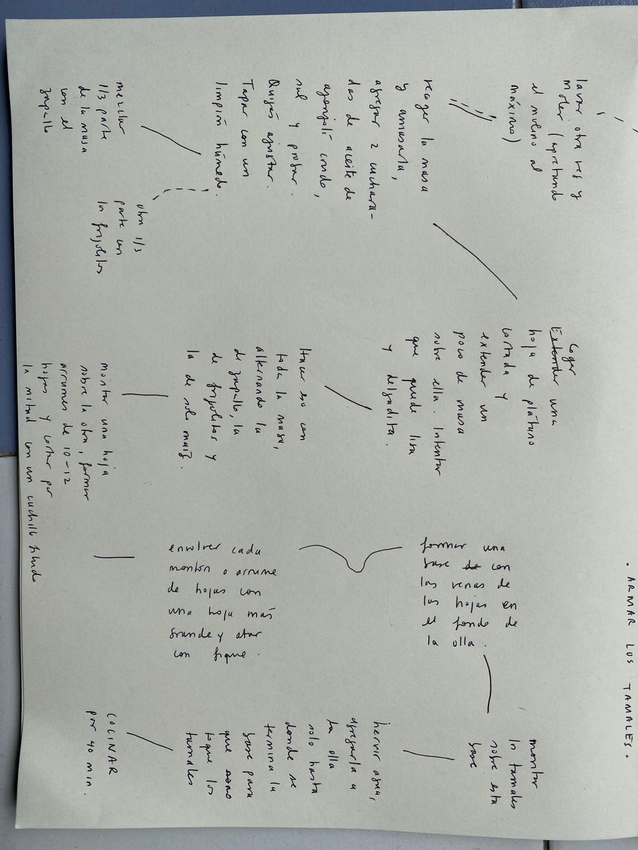 . ARMAR LOS TAMALES.
lavar otra vez y
moler (apretando
el molino al
máximo)
recoger la masa
y amasarla,
agregar 2 cuchara-
das de aceite de
ajonjolí crudo,
sal y probar.
Quizás ajustar.
Tapar con un
limpión húmedo.
mezclar
1/3 parte
de la masa
con el
zapallo
otra 1/3
parte con
los frijolitos
Coger
Extender una
hoja de plátano
cortada y
extender un
poco de masa
sobre ella. Intentar
que quede lisa
y delgadita.
Hacer eso con
toda la masa,
alternando la
de zapallo, la
de frijolitos y
la de solo maíz.
montar una hoja
sobre la otra, formar
arrumes de 10-12
hojas y cortar por
la mitad con un cuchillo filudo
envolver cada
montón o arrume
de hojas con
una hoja más
grande y atar
con fique.
formar una
base de con
las venas de
las hojas en
el fondo de
la olla.
montar
los tamales
sobre esta
base
hervir agua,
agregarla a
la olla
solo hasta
donde se
termina la
base para
que
toque los
tamales
COCINAR
por 40 min.